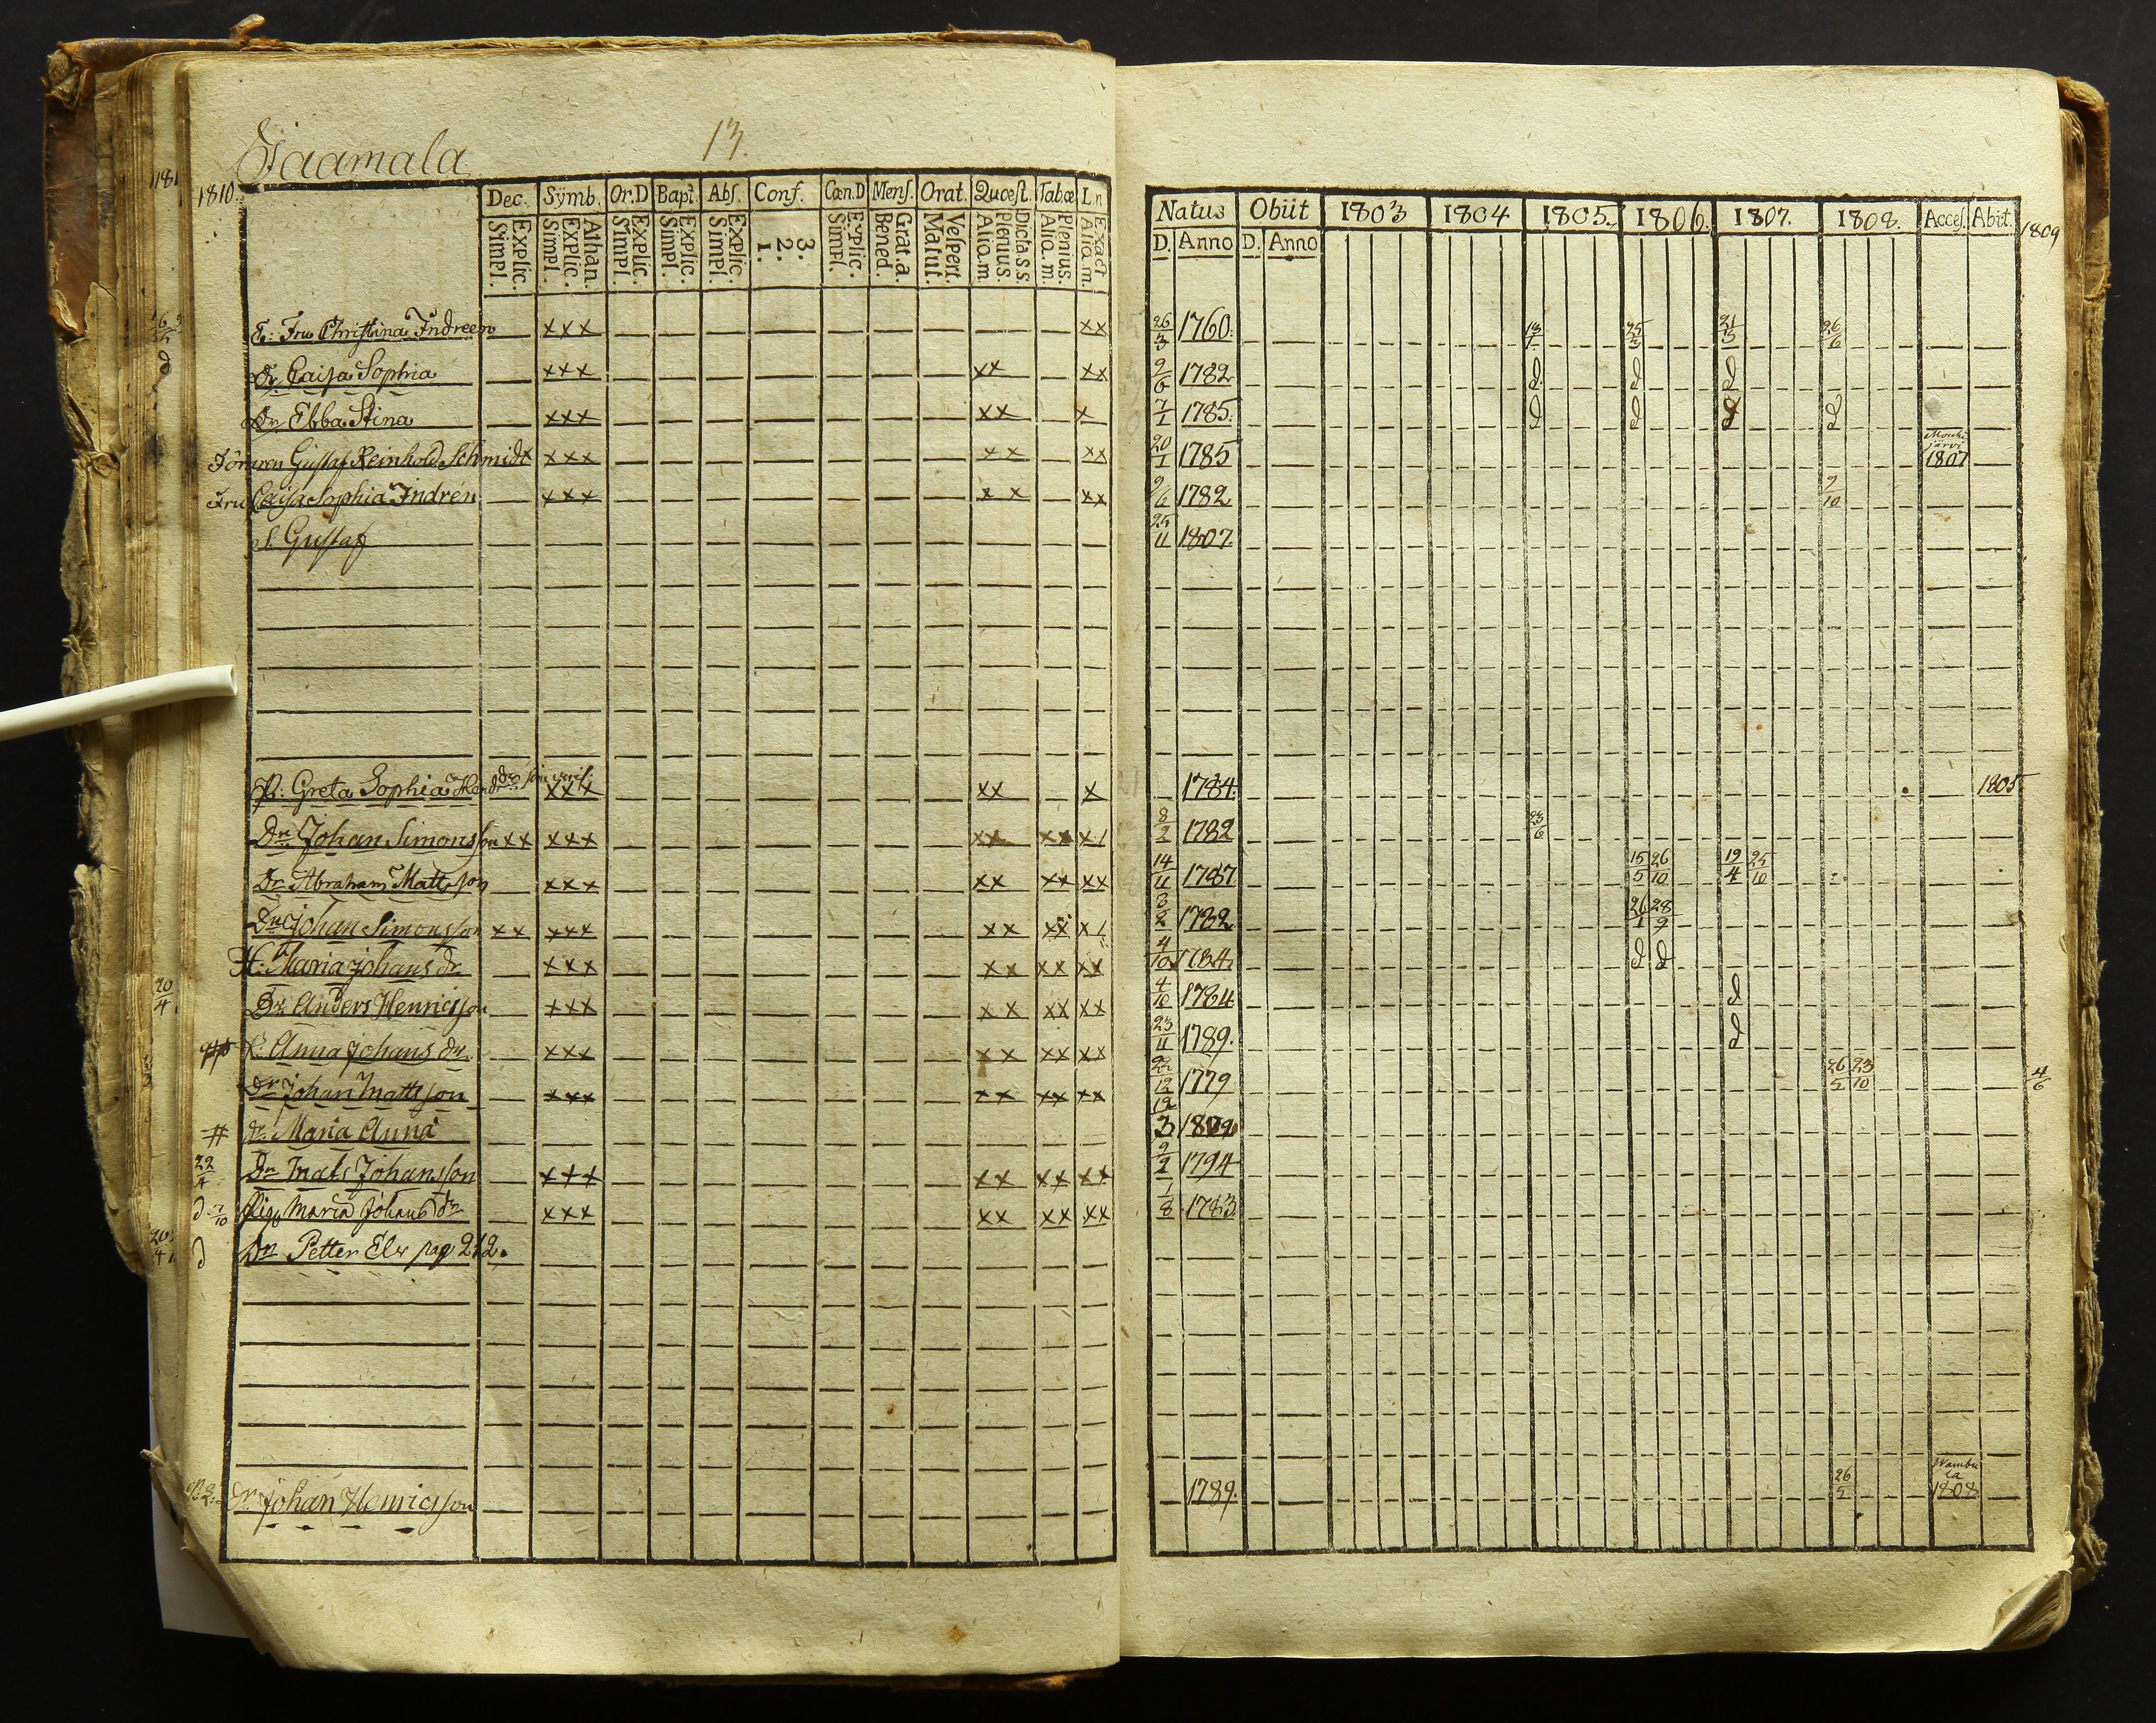 13.
1810.
Dec. Symb. Or.D Bapt. Abſ. Conf. Cœn.D Menſ. Orat. Quœſt. Tab.œ L.n
Explic. Simpl. Athan. Explic. Simpl. Explic. Simpl. Explic. Simpl. Explic. Simpl. 3. 2. 1. Explic. Simpl. Grat.a. Bened. Veſpert. Matut. Dicta.s.s. Plenius. Aliq.m Plenius. Aliq.m. Exact Aliq.m.
E: Fru Christina Indreen xxx xx
Dr. Caisa Sophia xxx xx xx
Dr. Ebba Stina xxx xx x
Gustaf Reinhold Schmidt xxx xx xx
Fru Caisa Sophia Indrén xxx xx xx
S. Gustaf
P: Greta Sophia xxx xx x
Dr. Johan Simonsson xx xxx xx xx x/
Dr. Abraham Mattsson xxx xx xx xx
Dr. Johan Simonsson xx xxx xx xx x/
H: Maria Johans dr. xxx xx xx xx
20/4. Dr. Anders Henricsson xxx xx xx xx
Anna Johans dr. xxx xx xx xx
Dr. Johan Mattsson xxx xx xx xx
# dr. Maria Anna
22/4 Dr. Mats Johansson xxx xx xx xx
d 7/10 Pig. Maria Johans dr xxx xx xx xx
d Dn Petter pag 212.
Dr. Johan Henricsson
Natus Obiit 1803 1804 1805. 1806. 1807. 1808. Acceſ. Abiit. 1809
D. Anno D. Anno
26/3 1760. 13/1 25/3 21/3 26/6
9/6 1782 d d d
7/1 1785. d d d d
20/1 1785 1807
9/6 1782 9/10
25/11 1807.
1784. 1805
8/2 1782 23/6
14/11 1787 15/5 26/10 19/4 25/10
3/2 1782 26/1 28/9
4/10 1784 d d
4/10 1784 d
23/11 1789. d
22/12 1779 26/5 23/10 4/6
12/3 1809
9/2 1794
1/8 1783
1789. 26/5 1808